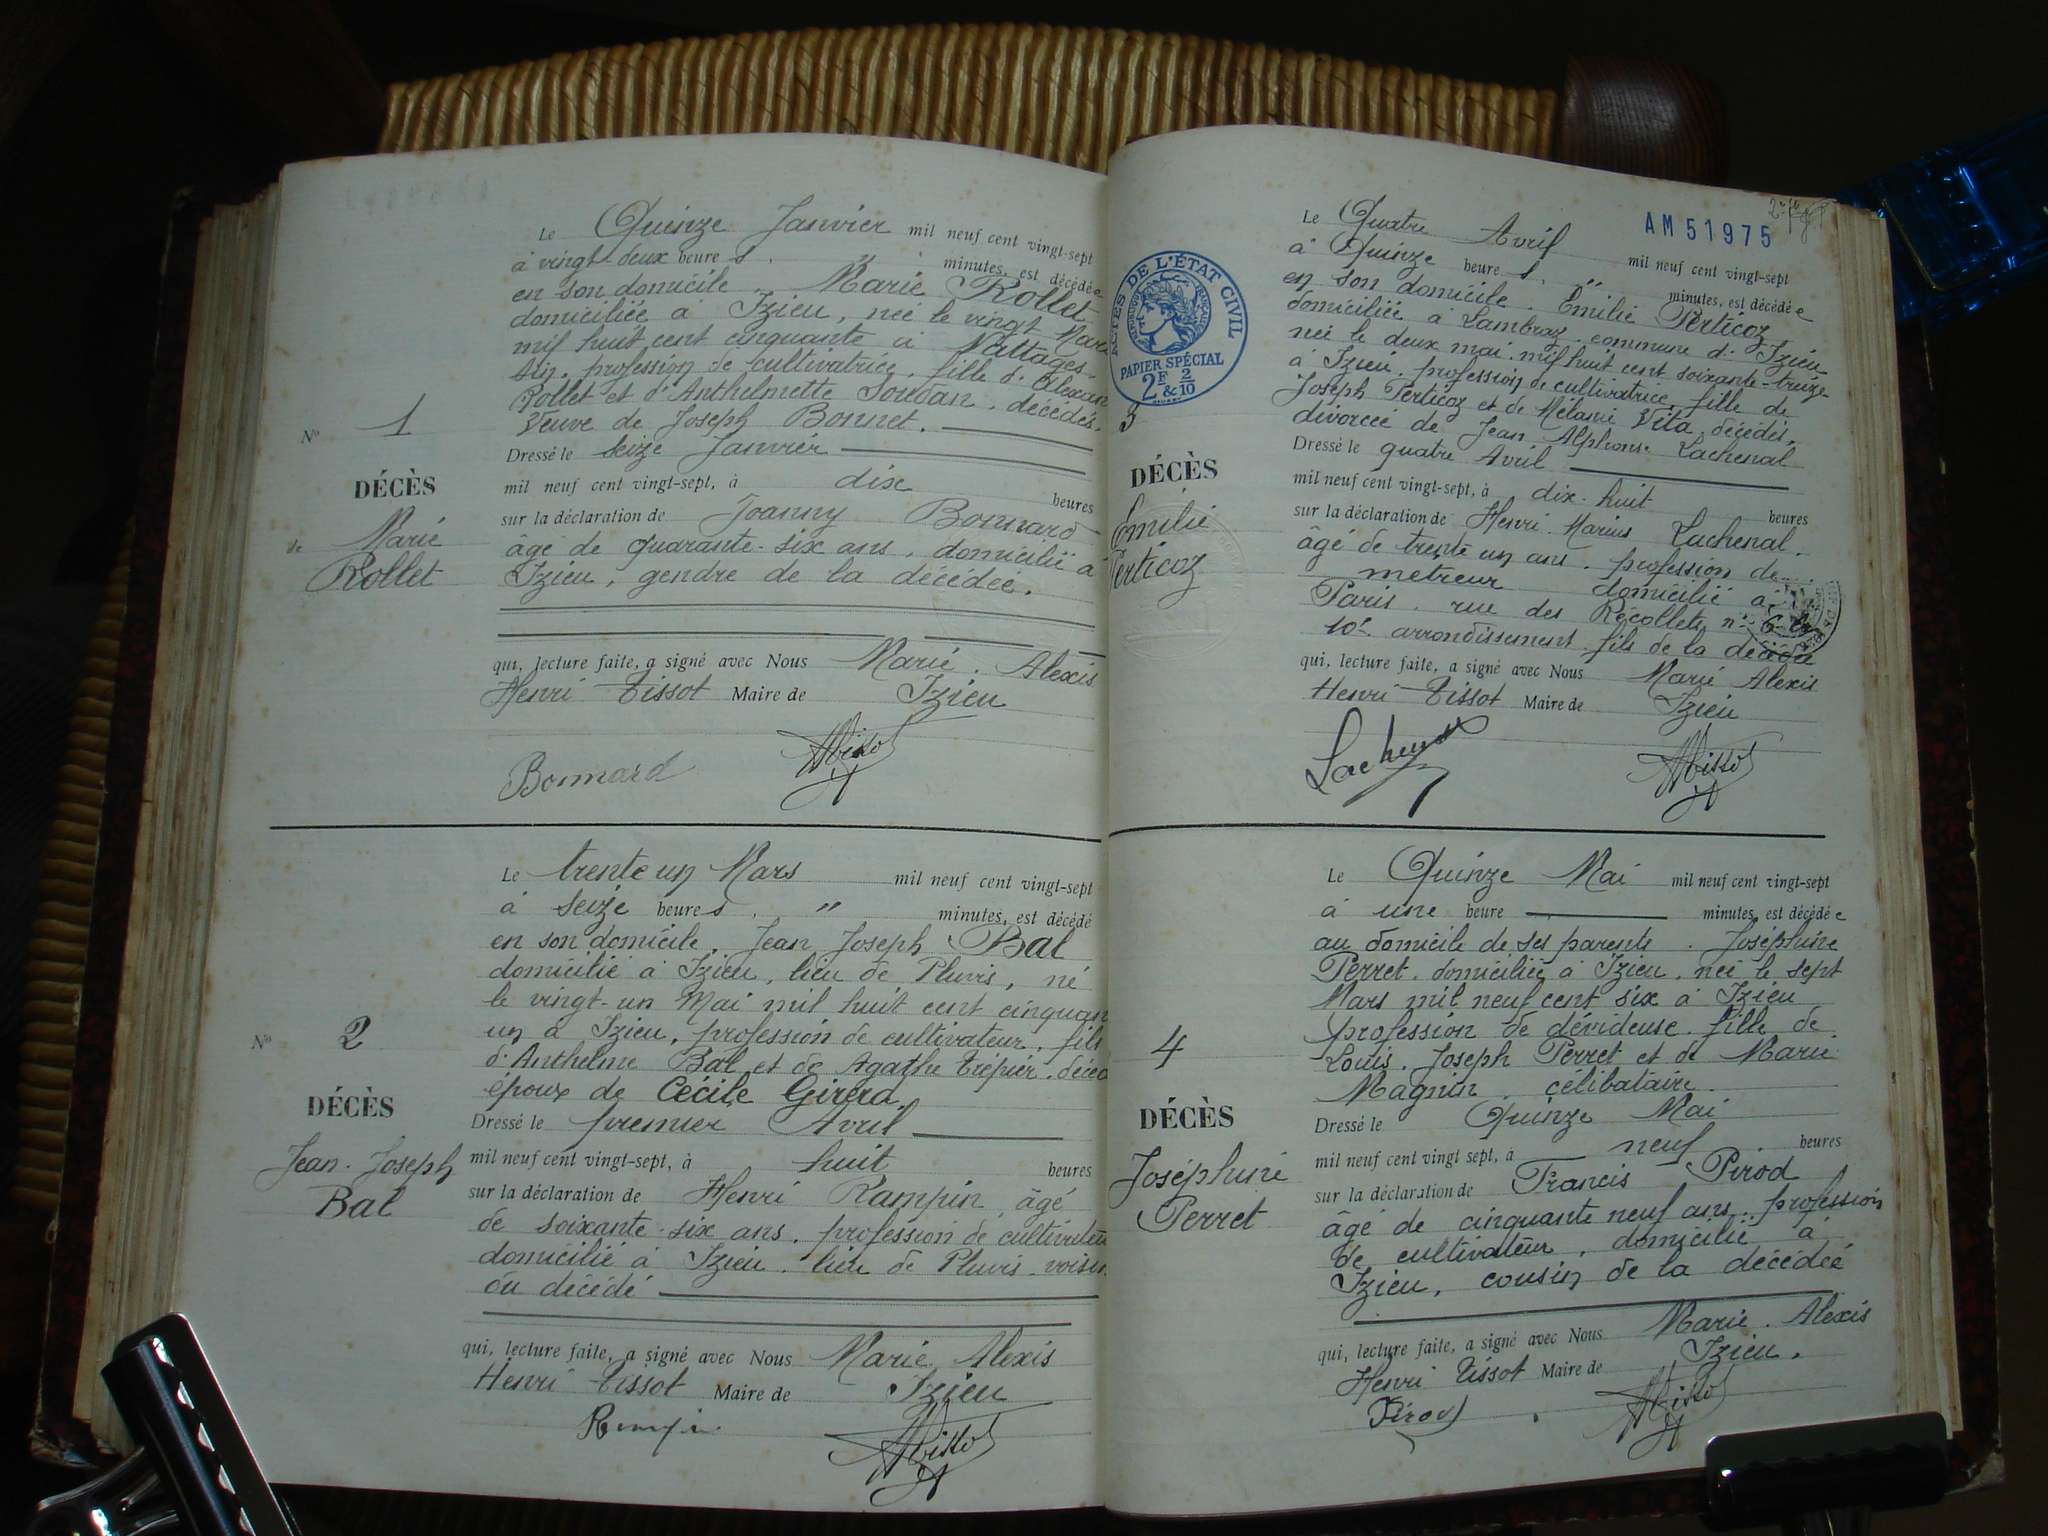 Le Quinze Janvier mil neuf cent vingt-sept
à vingt-deux heures " minutes, est décédée
en son domicile, Marie Rollet
domiciliée à Izieu, née le vingt Mars
mil huit cent cinquante à Nattages-
Ain, profession de cultivatrice, fille d'Alexan
Rollet et d'Anthelmette Soudan, décédés.
Veuve de Joseph Bonnet.
Dressé le seize Janvier
mil neuf cent vingt-sept, à dix heures
sur la déclaration de Joanny Bonnard
âgé de quarante-six ans, domicilié à
Izieu, gendre de la décédée.
qui, lecture faite, a signé avec Nous Marie, Alexis
Henri Tissot Maire de Izieu
Bonnard
Nº 1
DÉCÈS
de Marie
Rollet
Le trente un Mars mil neuf cent vingt-sept
à seize heures " minutes, est décédé
en son domicile, Jean Joseph Bal
domicilié à Izieu, lieu de Pluvis, né
le vingt-un Mai mil huit cent cinquan
un à Izieu, profession de cultivateur, fils
d'Anthelme Bal et de Agathe Trépier, décé
époux de Cécile Girera.
Dressé le premier Avril
mil neuf cent vingt-sept, à huit heures
sur la déclaration de Henri Rampin, âgé
de soixante-six ans, profession de cultivateu
domicilié à Izieu, lieu de Pluvis, voisin
du décédé
qui, lecture faite, a signé avec Nous Marie, Alexis
Henri Tissot Maire de Izieu
Nº 2
DÉCÈS
Jean-Joseph
Bal
AM51975
ACTES DE L'ÉTAT CIVIL
PAPIER SPÉCIAL
2F & 2/10
Le Quatre Avril mil neuf cent vingt-sept
à Quinze heures " minutes, est décédée
en son domicile, Emilie Perticoz
domiciliée à Lambraz, commune d'Izieu
née le deux mai mil huit cent soixante-treize
à Izieu, profession de cultivatrice, fille de
Joseph Perticoz et de Mélanie Vita, décédés,
divorcée de Jean Alphonse Lachenal
Dressé le quatre Avril
mil neuf cent vingt-sept, à dix-huit heures
sur la déclaration de Henri Marius Lachenal.
âgé de trente un ans, profession de
métreur domicilié à
Paris, rue des Récollets nº 6
10e arrondissement, fils de la décédée
qui, lecture faite, a signé avec Nous Marie Alexis
Henri Tissot Maire de Izieu
Lachenal
3
DÉCÈS
Emilie
Perticoz
Le Quinze Mai mil neuf cent vingt-sept
à une heure minutes, est décédée
au domicile de ses parents, Joséphine
Perret, domiciliée à Izieu, née le sept
Mars mil neuf cent six à Izieu
profession de dévideuse, fille de
Louis, Joseph Perret et de Marie
Magnin, célibataire.
Dressé le Quinze Mai
mil neuf cent vingt sept, à neuf heures
sur la déclaration de Francis Pirod
âgé de cinquante neuf ans, profession
de cultivateur, domicilié à
Izieu, cousin de la décédée
qui, lecture faite, a signé avec Nous Marie, Alexis
Henri Tissot Maire de Izieu.
Pirod
4
DÉCÈS
Joséphine
Perret